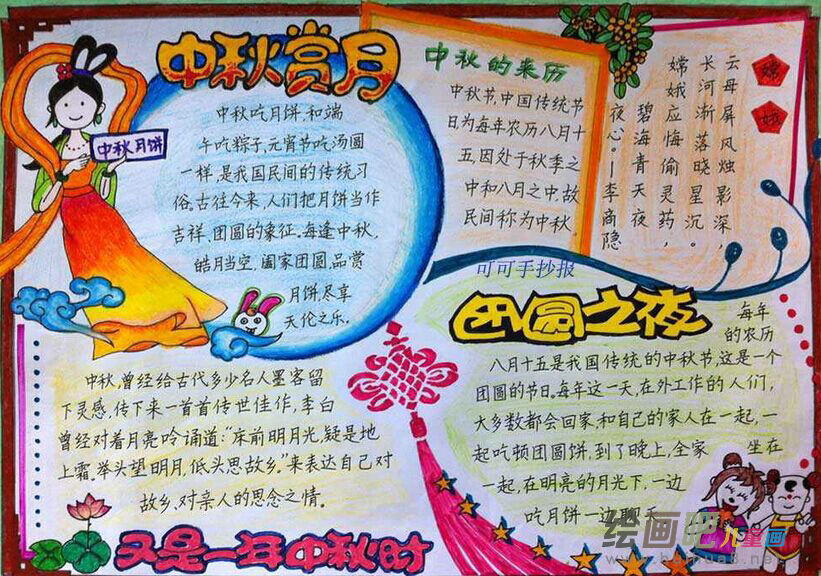 中秋赏月
中秋月饼
中秋吃月饼,和端
午吃粽子,元宵节吃汤圆
一样,是我国民间的传统习
俗。古往今来,人们把月饼当作
吉祥、团圆的象征。每逢中秋,
皓月当空,阖家团圆,品赏
月饼,尽享
天伦之乐。
中秋的来历
中秋节,中国传统节
日,为每年农历八月十
五,因处于秋季之
中和八月之中,故
民间称为中秋。
嫦娥
云母屏风烛影深,
长河渐落晓星沉。
嫦娥应悔偷灵药,
碧海青天夜
夜心。—李商隐
可可手抄报
团圆之夜
每年
的农历
八月十五是我国传统的中秋节,这是一个
团圆的节日。每年这一天,在外工作的人们,
大多数都会回家,和自己的家人在一起,一
起吃顿团圆饼,到了晚上,全家 坐在
一起,在明亮的月光下,一边
吃月饼一边聊天
中秋,曾经给古代多少名人墨客留
下灵感,传下来一首首传世佳作,李白
曾经对着月亮吟诵道:“床前明月光,疑是地
上霜。举头望明月,低头思故乡。”来表达自己对
故乡、对亲人的思念之情。
又是一年中秋时
绘画吧 儿童画